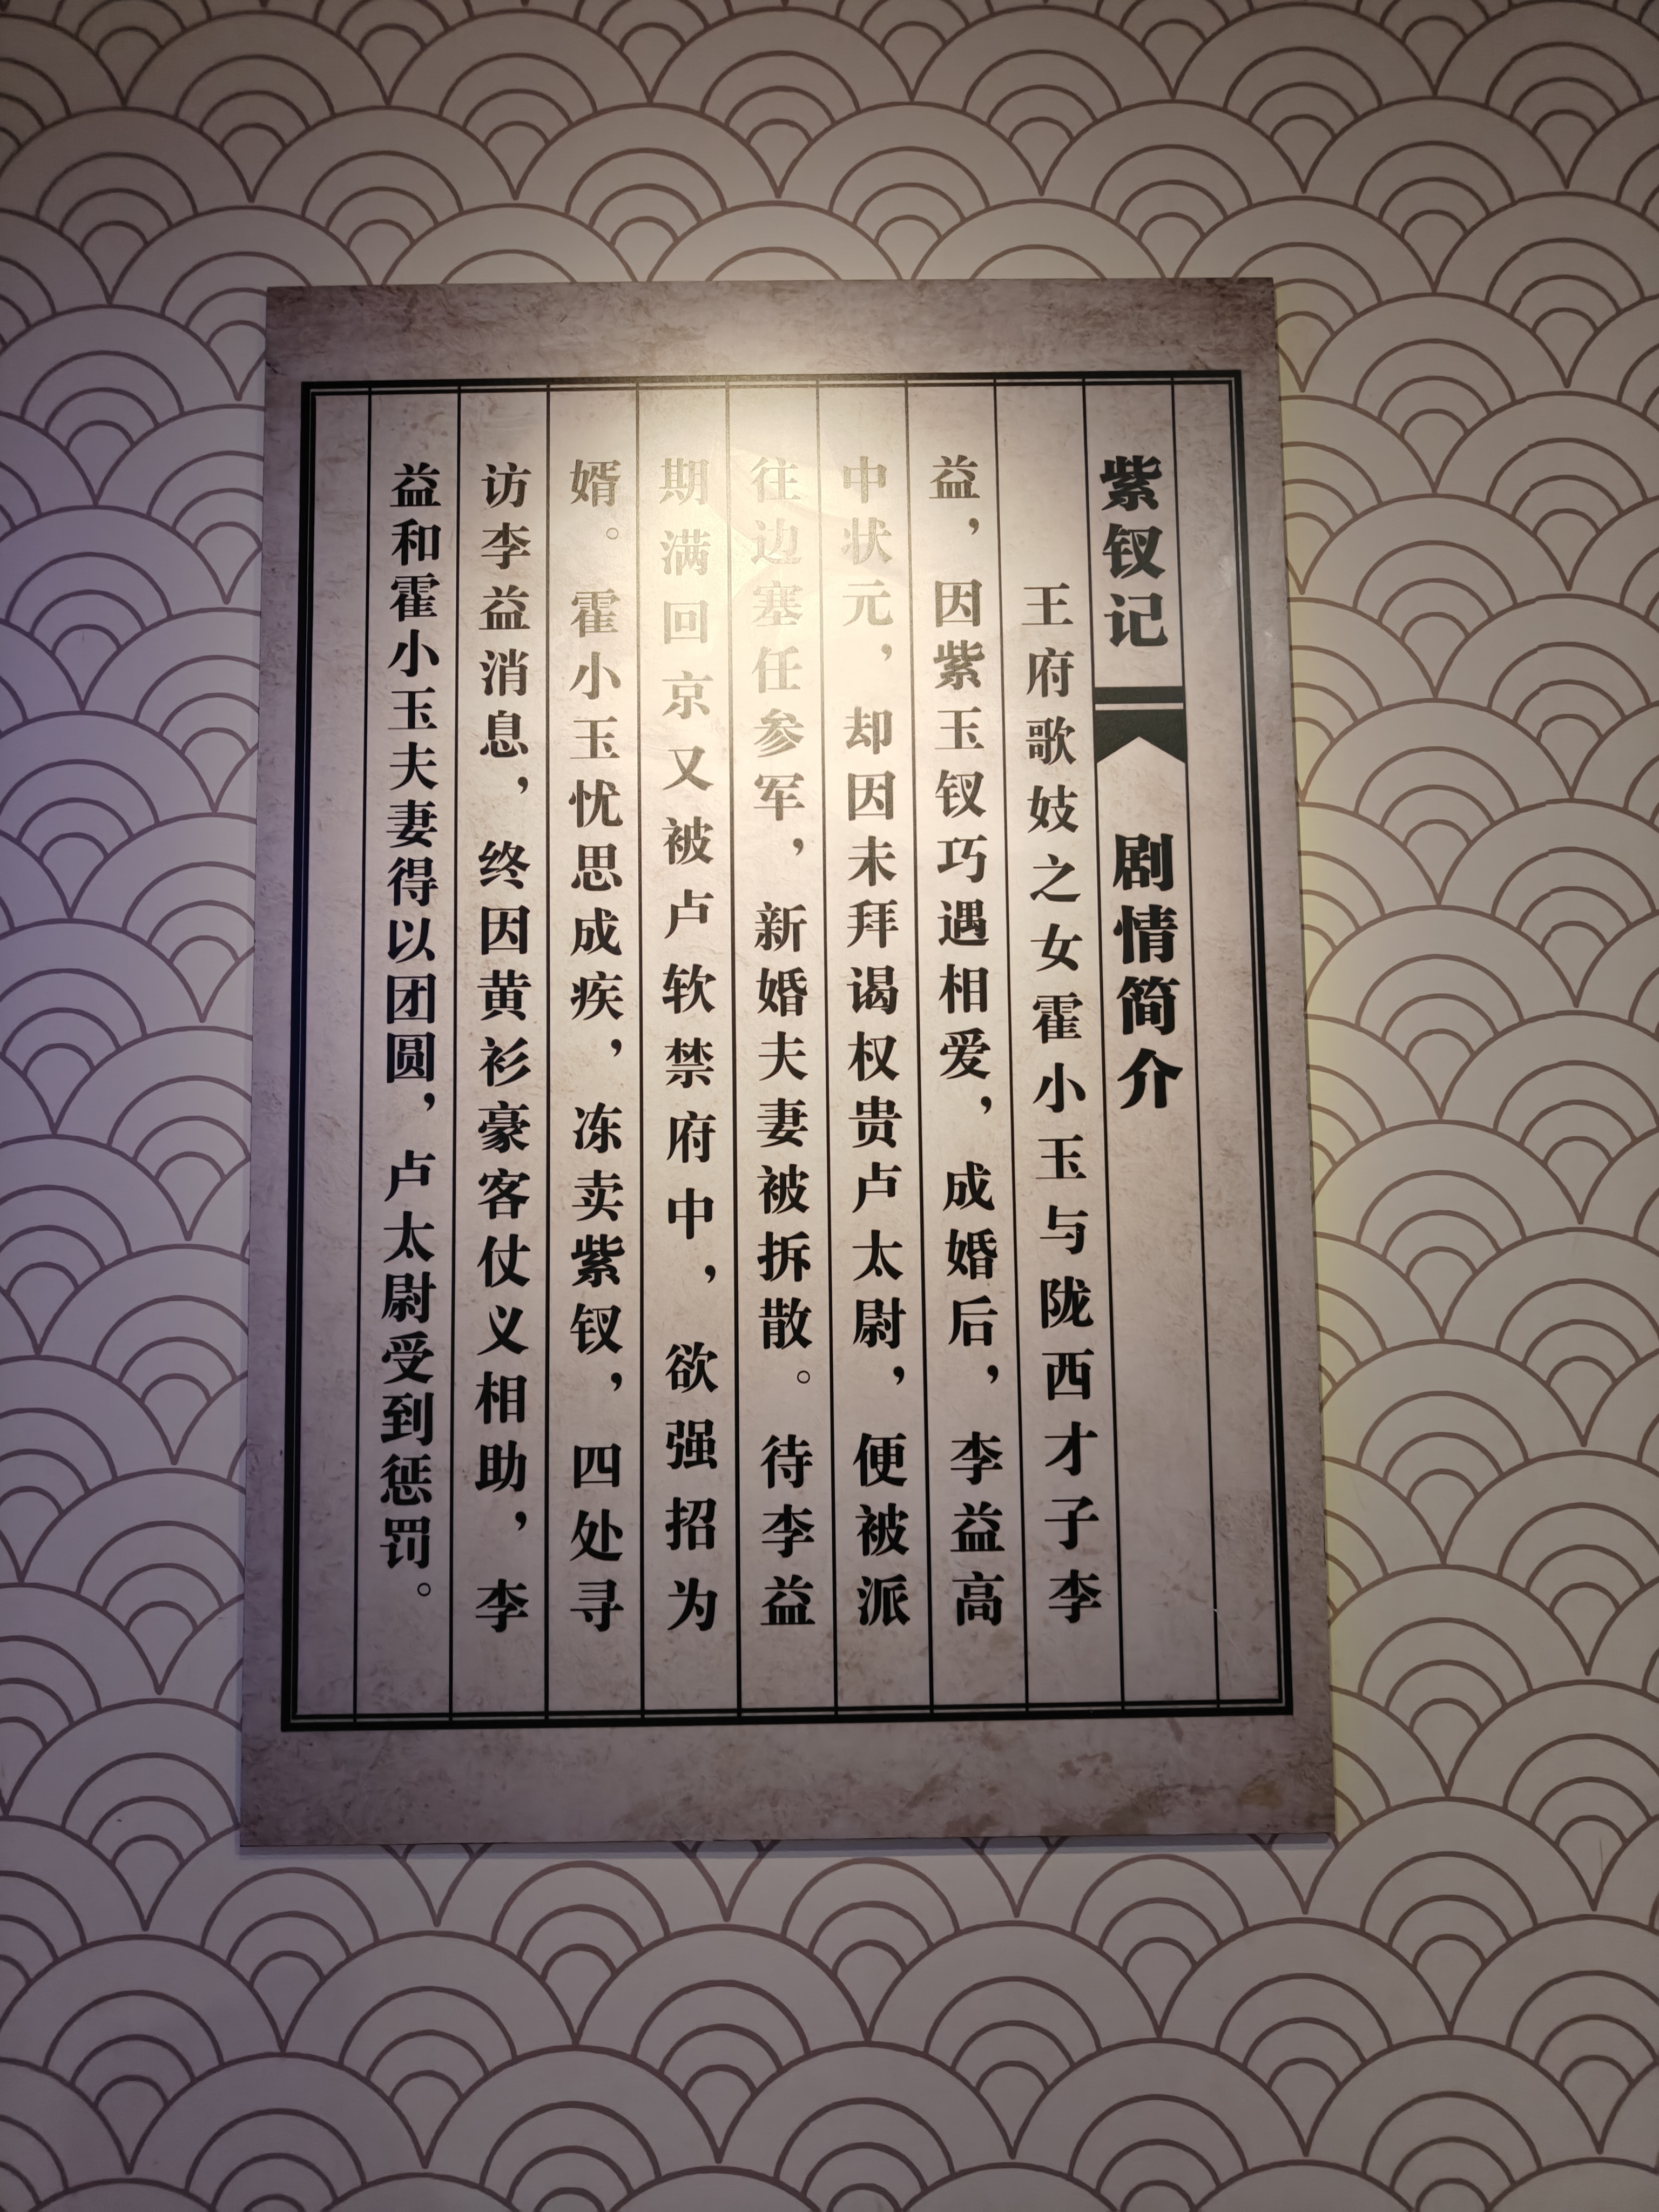 紫钗记 剧情简介
王府歌妓之女霍小玉与陇西才子李
益，因紫玉钗巧遇相爱，成婚后，李益高
中状元，却因未拜谒权贵卢太尉，便被派
往边塞任参军，新婚夫妻被拆散。待李益
期满回京又被卢软禁府中，欲强招为
婿。霍小玉忧思成疾，冻卖紫钗，四处寻
访李益消息，终因黄衫豪客仗义相助，李
益和霍小玉夫妻得以团圆，卢太尉受到惩罚。